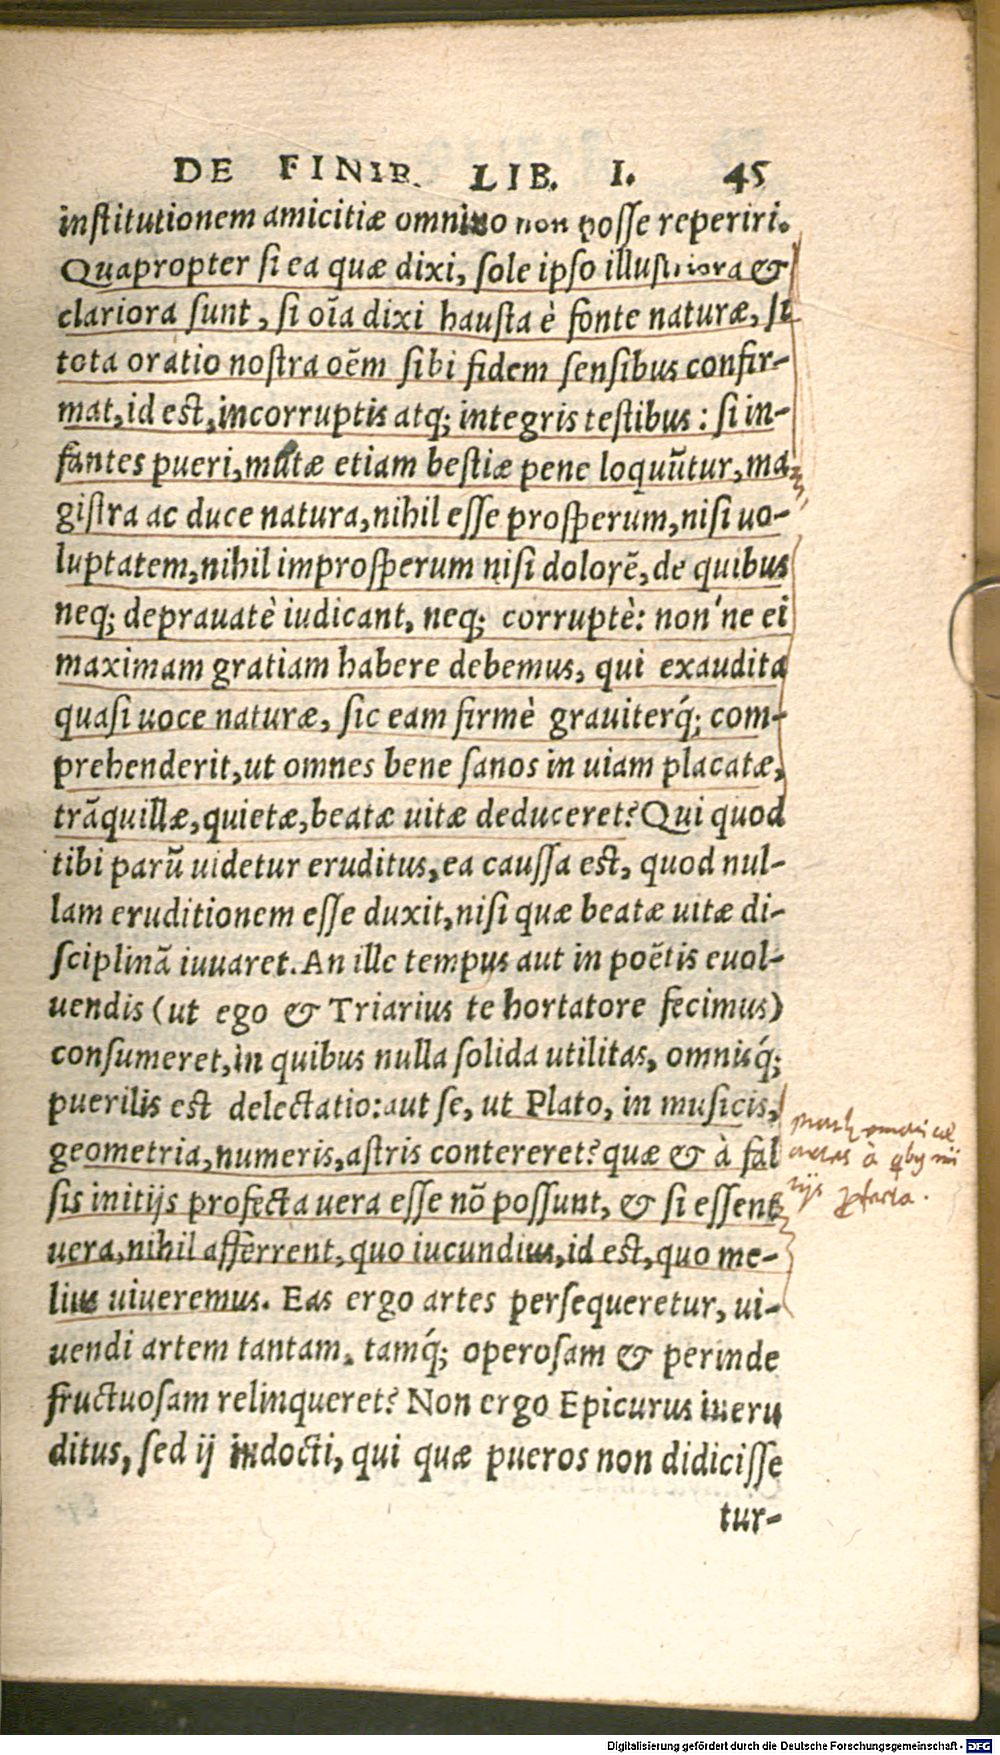 DE FINIB. LIB. I. 45
inſtitutionem amicitiæ omnino non poſſe reperiri.
Quapropter ſi ea quæ dixi, ſole ipſo illuſtriora &
clariora ſunt, ſi oīa dixi hauſta è fonte naturæ, ſi
tota oratio noſtra oēm ſibi fidem ſenſibus confir-
mat, id eſt, incorruptis atq; integris teſtibus: ſi in-
fantes pueri, mutæ etiam beſtiæ pene loquūtur, ma
giſtra ac duce natura, nihil eſſe proſperum, niſi uo-
luptatem, nihil improſperum niſi dolorē, de quibus
neq; deprauatè iudicant, neq; corruptè: non'ne ei
maximam gratiam habere debemus, qui exaudita
quaſi uoce naturæ, ſic eam firmè grauiterq́; com-
prehenderit, ut omnes bene ſanos in uiam placatæ,
trāquillæ, quietæ, beatæ uitæ deduceret? Qui quod
tibi parū uidetur eruditus, ea cauſſa eſt, quod nul-
lam eruditionem eſſe duxit, niſi quæ beatæ uitæ di-
ſciplinā iuuaret. An ille tempus aut in poëtis euol-
uendis (ut ego & Triarius te hortatore fecimus)
conſumeret, in quibus nulla ſolida utilitas, omnisq́;
puerilis eſt delectatio: aut ſe, ut Plato, in muſicis,
geometria, numeris, aſtris contereret? quæ & à fal
ſis initijs profecta uera eſſe nō poſſunt, & ſi eſſent
uera, nihil afferrent, quo iucundius, id eſt, quo me-
lius uiueremus. Eas ergo artes perſequeretur, ui-
uendi artem tantam, tamq́; operoſam & perinde
fructuoſam relinqueret? Non ergo Epicurus ineru
ditus, ſed ij indocti, qui quæ pueros non didiciſſe
tur-
Digitalisierung gefördert durch die Deutsche Forschungsgemeinschaft - DFG